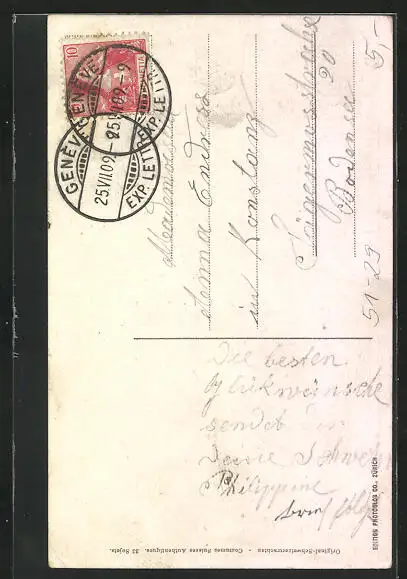 10
HELVETIA
GENÈVE
25.VII.09.-9
EXP. LETT.
GENÈVE
25.VII.09
EXP. LETT.
Anna Endres
in Konstanz
90
Bodensee
5,-
51-29
Die besten
Glückwünsche
sendet
Deine Schwester
Philippine
Brief folgt
Original-Schweizertrachten - Costumes Suisses Authentiques. 35 Sujets.
EDITION PHOTOGLOB CO., ZÜRICH